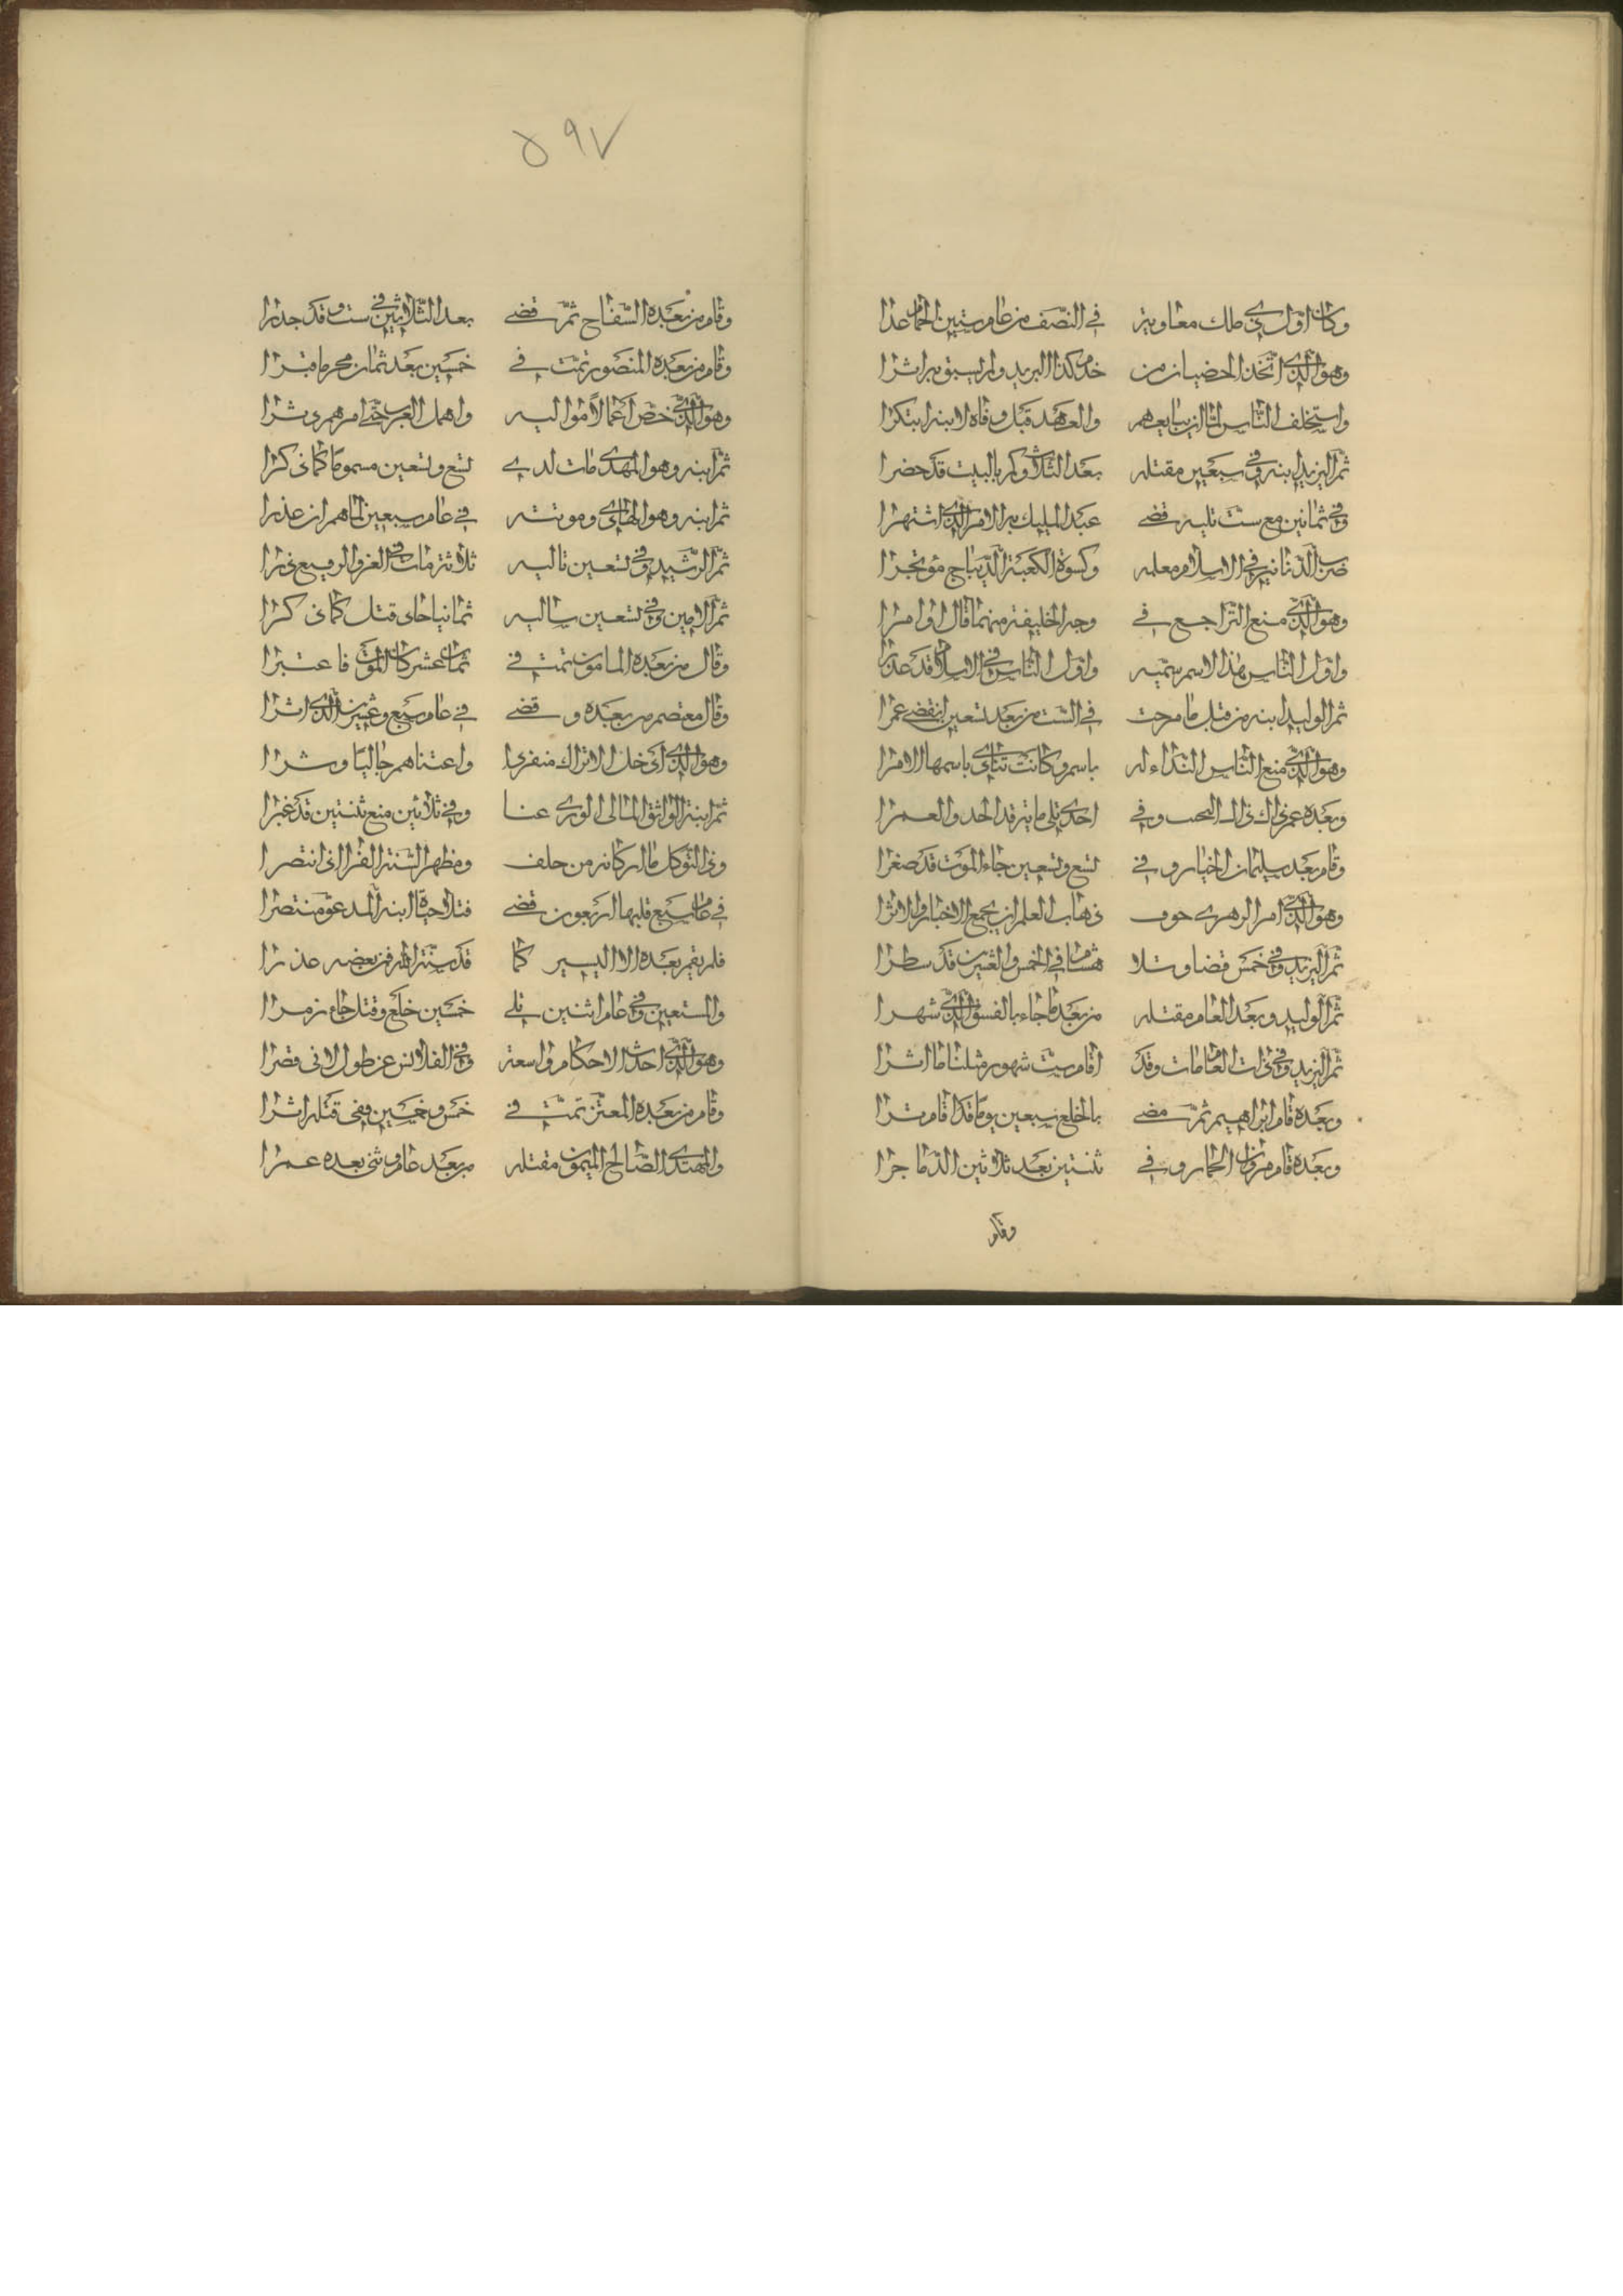 وكان اول ذي ملك معاوية في النصف من عام ستين الحمام عدا
وهو الذي اتخذ الخصيان من خدم كذا البريد ولم يسبق به اثرا
واستخلف الناس لما ان يبايعهم والعهد قبل وفاة لابنه ابتكرا
ثم اليزيد ابنه وفي سبعين مقتله بعد الثلاث وكم بالبيت قد حضرا
وفي ثمانين مع ست تليه قضى عبد المليك به الامر الذي اشتهرا
ضرب الدنانير في الاسلام معلمه وكسوة الكعبة الديباج مؤتجرا
وهو الذي منع التراجع في وجه الخليفة مهما قال او امرا
واول الناس هذا الاسم سميه واول الناس في الاسلام قد غدرا
ثم الوليد ابنه من قبل ما مرحت في الست من بعد تسعين انقضى عمرا
وهو الذي منع الناس النداء له باسم وكانت تنادى باسمها الامرا
وبعده عمر ذاك النجب وفي احدى تلي ماية قد الحد والعمرا
وقام بعد سليمان الخيار وفي تسع وتسعين جاء الموت قد صغرا
وهو الذي امر الزهري خوف ذهاب العلم ان يجمع الاخبار والاثرا
ثم اليزيد وفي خمس قضا وتلا هشام في الخمس والعشرين قد سطرا
ثم الوليد وبعد العام مقتله من بعد ما جاء بالفسق الذي شهرا
ثم اليزيد وفي ذات العام مات وقد اقام ست شهور مثلنا ما اثرا
وبعده قام ابراهيم ثم مضى بالخلع سبعين يوما قد اقام ترا
وبعده قام مروان الحمار وفي ثنتين بعد ثلاثين الدما جرا
وقام
٥٩٧
وقام من بعده السفاح ثم قضى بعد الثلاثين في ست وقد جدرا
وقام من بعده المنصور تمت في خمسين بعد ثمان محرما قبرا
وهو الذي خص اعمالا مواليه واهمل العرب حتى امرهم دثرا
ثم ابنه وهو المهدي مات لدى تسع وتسعين مسموما كما ذكرا
ثم ابنه وهو الهادي وموتته في عام سبعين لما هم ان غدرا
ثم الرشيد وفي تسعين تاليه ثلاثة مات في الغزو الرفيع ذرا
ثم الامين وفي تسعين تاليه ثمانيا جاء قتل كما ذكرا
وقال من بعده المامون تمت في ثمان عشر كان الموت فاعتبرا
وقال معتصم من بعده وقضى في عام سبع وعشرين الذي اثرا
وهو الذي ادخل الاتراك منفردا واعتناهم جالبا وشرا
ثم ابنه الواثق المالى الورى عنا وفي ثلاثين مع ثنتين قد غبرا
وذو التوكل ما اركانه من خلف ومظهر السنة الغرا اذا انتصرا
في عام سبع تليها اربعون قضى قتلا حياه ابنه المدعو منتصرا
فلم يقم بعده الا اليسير كما قد سنه الله فمن بعضه غدرا
والمستعين وفي عام اثنين تلي خمسين خلع وقتل جاء زمرا
وهو الذي احدث الاحكام واسعة وفي القلانس عن طول الاتى قصرا
وقام من بعده المعتز تمت في خمس وخمسين وفي قتله اثرا
والمهتدي الصالح الميمون مقتله من بعد عام وفي بعده عمرا